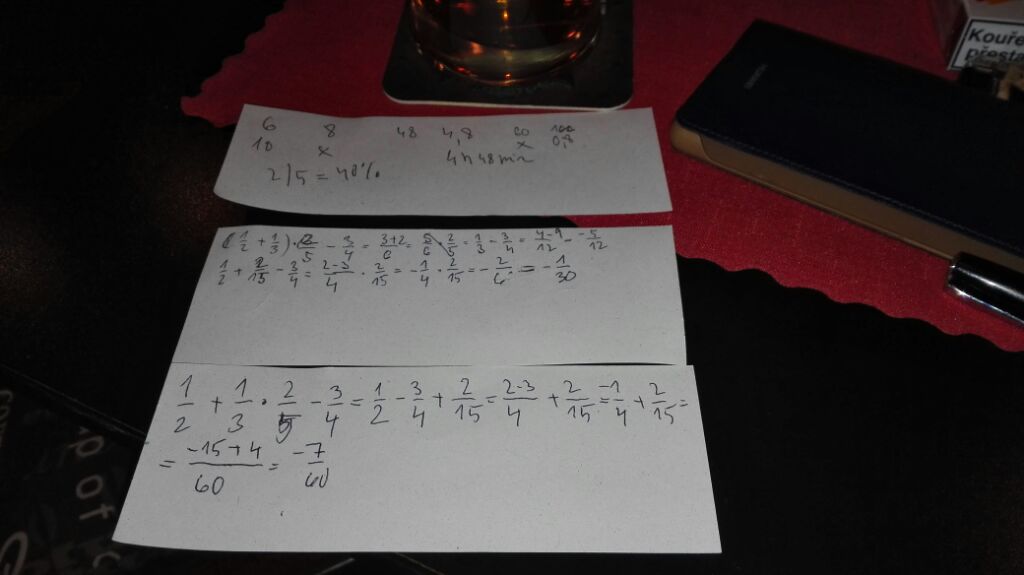 Kouře
přesta
6 8 48 4,8 60 100
10 x 4h48min x 0,8
2/5 = 40%
(1/2 + 1/3) · 2/5 - 3/4 = 3+2/6 = 5/6 · 2/5 = 1/3 - 3/4 = 4-9/12 = -5/12
1/2 + 2/15 - 3/4 = 2-3/4 · 2/15 = -1/4 · 2/15 = -2/6 = -1/30
1/2 + 1/3 · 2/5 - 3/4 = 1/2 - 3/4 + 2/15 = 2-3/4 + 2/15 = -1/4 + 2/15 =
= -15+4/60 = -7/60
p of